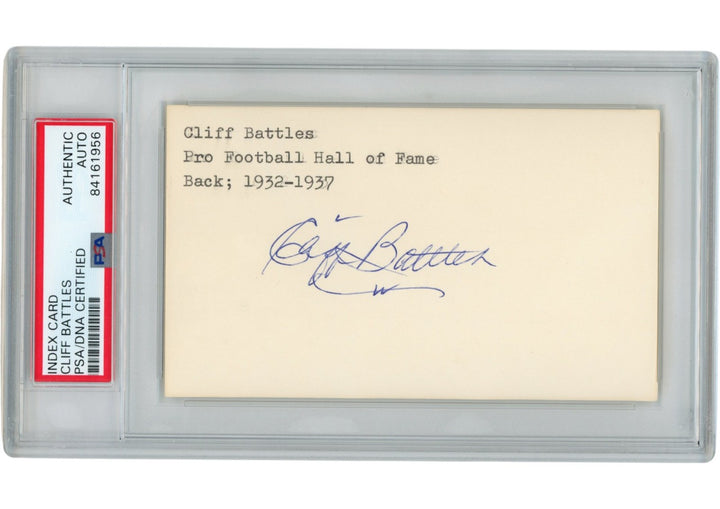 INDEX CARD
CLIFF BATTLES
PSA/DNA CERTIFIED
AUTHENTIC
AUTO
84161956
PSA
Cliff Battles
Pro Football Hall of Fame
Back; 1932-1937
Cliff Battles